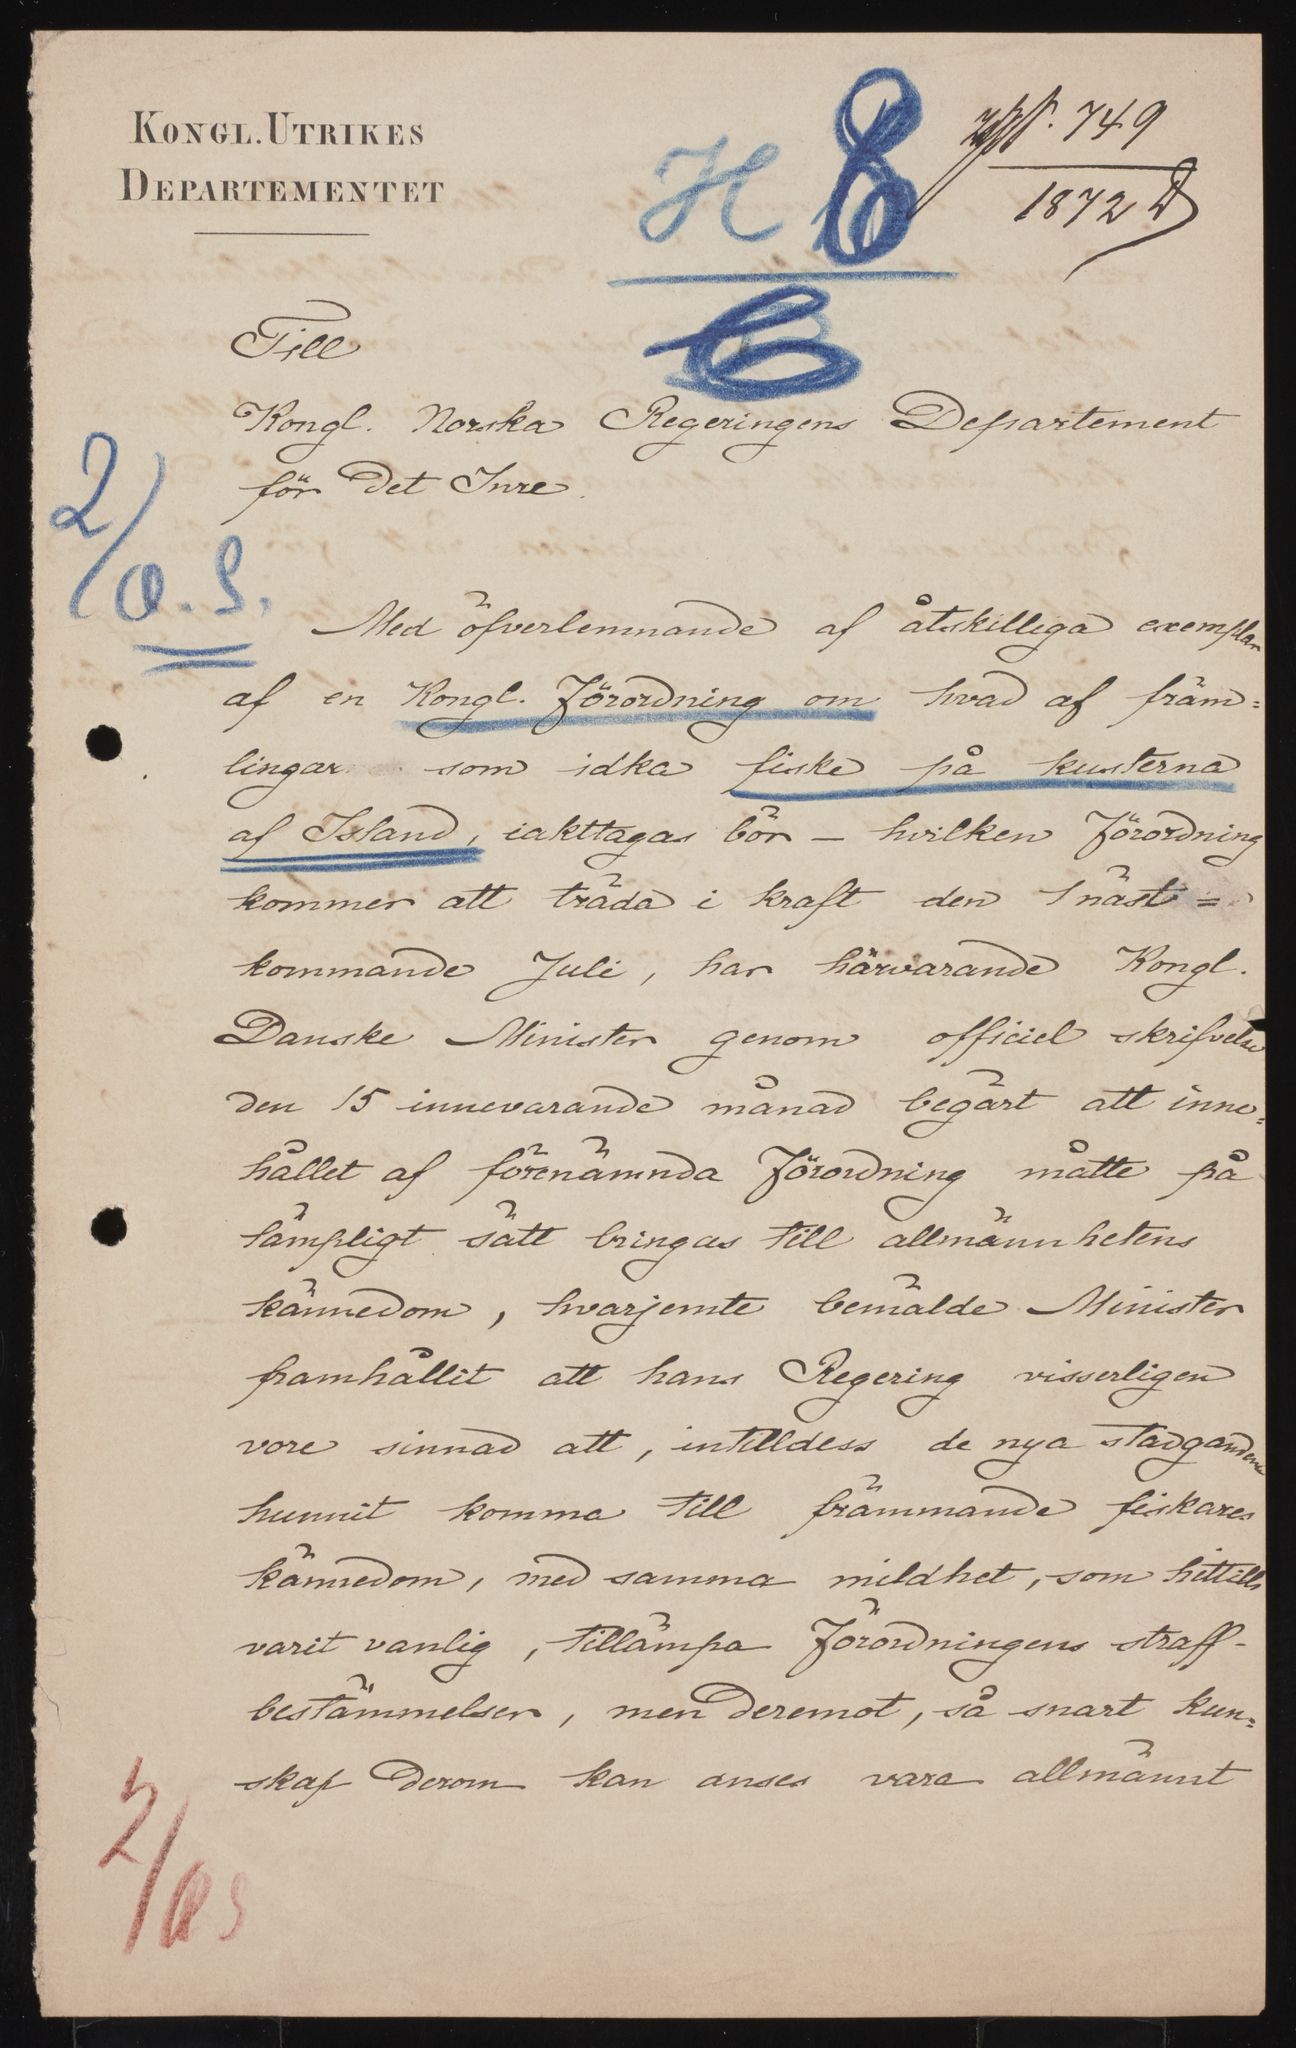 KONGL. UTRIKES
DEPARTEMENTET
H
749
1872 D
Till
Kongl. Norska Regeringens Departement
för Det Inre.
2/
Ö. S.
Med öfverlemnande af åtskilliga exemplar
af en Kongl. Förordning om hvad af främ=
lingar som idka fiske på kusterna
af Island, iakttagas bör – hvilken Förordning
kommer att träda i kraft den 1 näst=
kommande Juli, har härvarande Kongl.
Danske Minister genom officiel skrifvelse
den 15 innevarande månad begärt att inne=
hållet af förenämnda Förordning måtte på
lämpligt sätt bringas till allmännhetens
kännedom, hvarjemte bemälde Minister
framhållit att hans Regering visserligen
vore sinnad att, intilldess de nya stadgandena
hunnit komma till främmande fiskares
kännedom, med samma mildhet, som hittills
varit vanlig, tillämpa Förordningens straff-
bestämmelser, men deremot, så snart kun=
skap derom kan anses vara allmännt